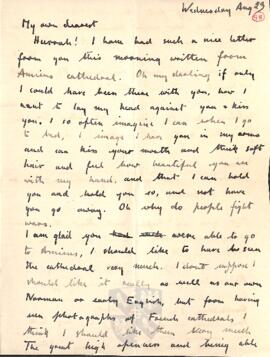 Wednesday Aug 29
My own dearest
Hurrah! I have had such a nice letter
from you this morning written from
Amiens cathedral. Oh my darling if only
I could have been there with you, how I
want to lay my head against you & kiss
you, I so often imagine I can when I go
to bed, I image I have you in my arms
and can kiss your mouth and thick soft
hair and feel how beautiful you are
with my hand. and that I can hold
you and hold you so, and not have
you go away. Oh why do people fight
wars.
I am glad you were able to go
to Amiens, I should like to have seen
the cathedral very much. I dont suppose I
should like it as well as our own
Norman or early English, but from having
seen photographs of French cathedrals I
think I should like them very much
The great high openness and being able